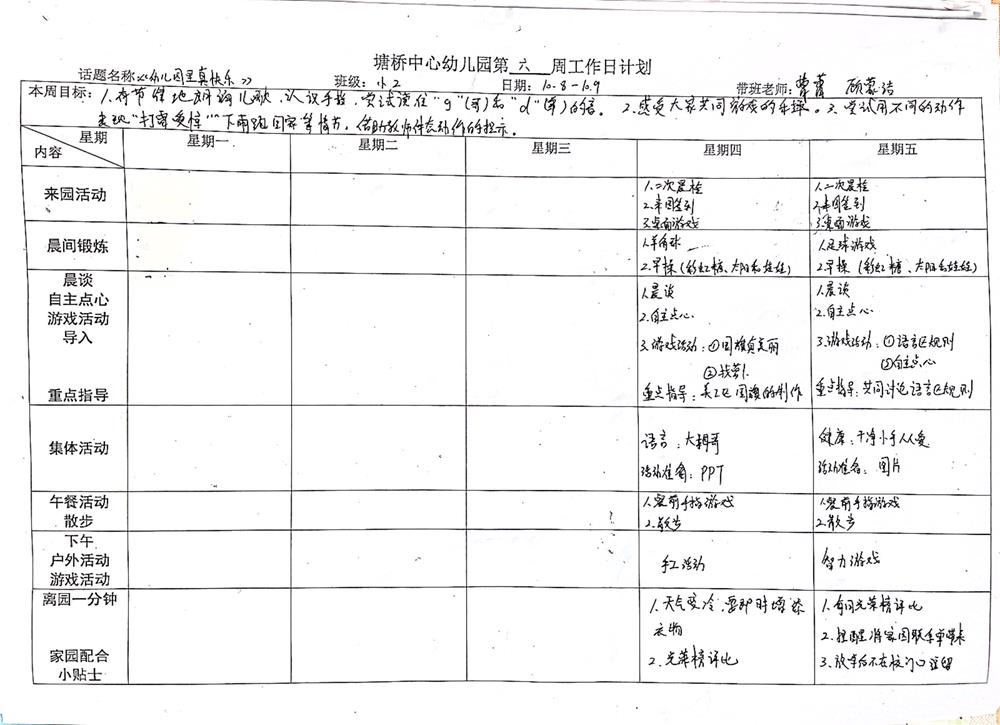 塘桥中心幼儿园第 六 周工作日计划
话题名称:《幼儿园里真快乐》 班级: 小2 日期: 10.8-10.9 带班老师:
本周目标: 1.有节 地朗诵儿歌,认识手指,尝试读住"g"(哥)和"d"(弟)的音。 2.感受大家共同游戏的乐趣。 3.尝试用不同的动作
表现"打雷 "下雨跑回家等情节,
星期
内容 星期一 星期二 星期三 星期四 星期五
来园活动
1.二次晨检 1.二次晨检
2.来园签到 2.来园签到
3.桌面游戏 3.桌面游戏
晨间锻炼
1.羊角球 1.足球游戏
2.早操(彩虹糖、太阳和娃娃) 2.早操(彩虹糖、太阳和娃娃)
晨谈
自主点心
游戏活动
导入
重点指导
1.晨谈 1.晨谈
2.自主点心 2.自主点心
3.游戏活动:①国旗真美丽 3.游戏活动:①语言区规则
② ②自主点心
重点指导:美工区国旗的制作 重点指导:共同讨论语言区规则
集体活动
语言:大拇哥 健康:干净小手人人爱
活动准备:PPT 活动准备:图片
午餐活动
散步
1.餐前手指游戏 1.餐前手指游戏
2.散步 2.散步
下午
户外活动
游戏活动
手工活动 智力游戏
离园一分钟
家园配合
小贴士
1.天气变冷,要即时增添 1.每日光荣榜评比
衣物 2.提醒将家园联系单带来
2.光荣榜评比 3.放学后不在校门口逗留